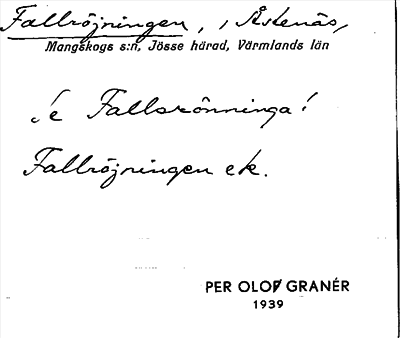 Fallröjningen, i Åstenäs,
Mangskogs s:n, Jösse härad, Värmlands län
Se Fallsrönninga!
Fallröjningen ek.
PER OLOF GRANÉR
1939